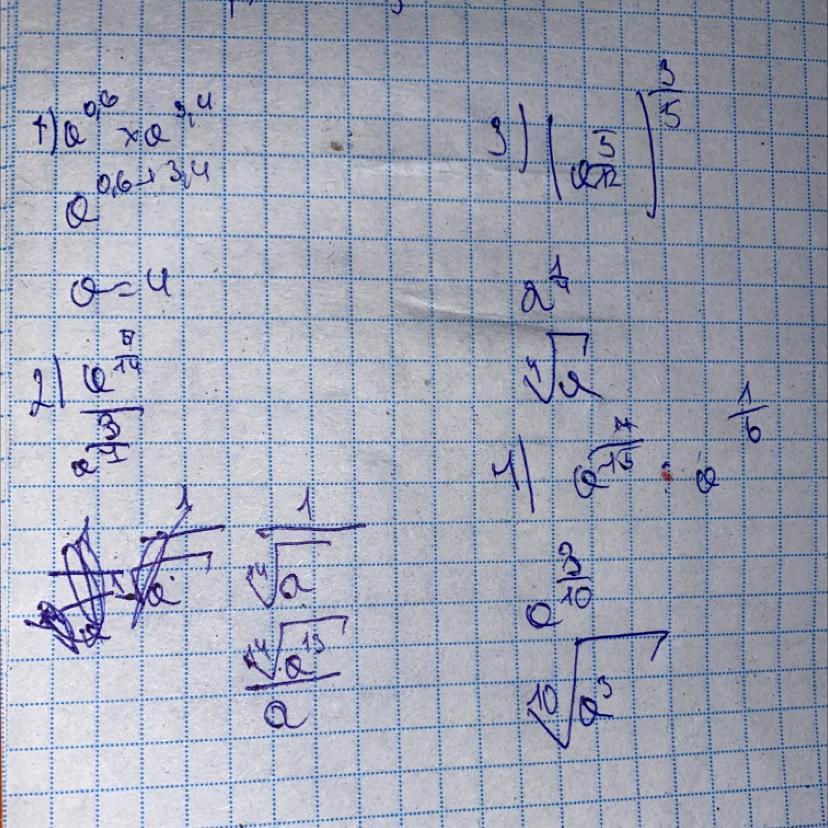 1) a^{0,6} × a^{3,4}
a^{0,6+3,4}
a=4
2) \frac{a^{\frac{}{14}}}{a^{\frac{3}{7}}}
\frac{1}{\sqrt[14]{a}}
\frac{\sqrt[14]{a^{13}}}{a}
3) (a^{\frac{5}{12}})^{\frac{3}{5}}
a^{\frac{1}{4}}
\sqrt[4]{a}
4) a^{\frac{7}{15}} : a^{\frac{1}{6}}
a^{\frac{3}{10}}
\sqrt[10]{a^3}